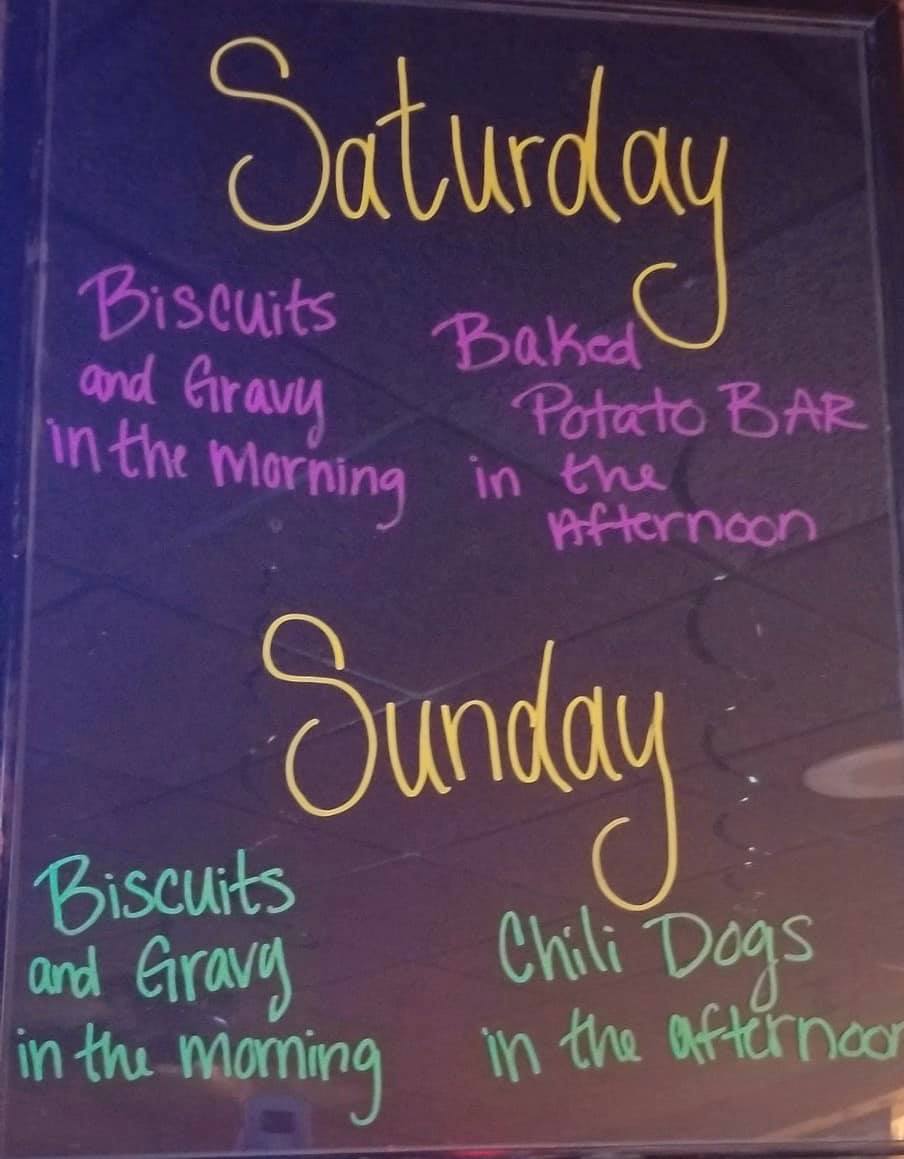 Saturday
Biscuits
and Gravy
in the Morning
Baked
Potato BAR
in the
Afternoon
Sunday
Biscuits
and Gravy
in the morning
Chili Dogs
in the afternoon